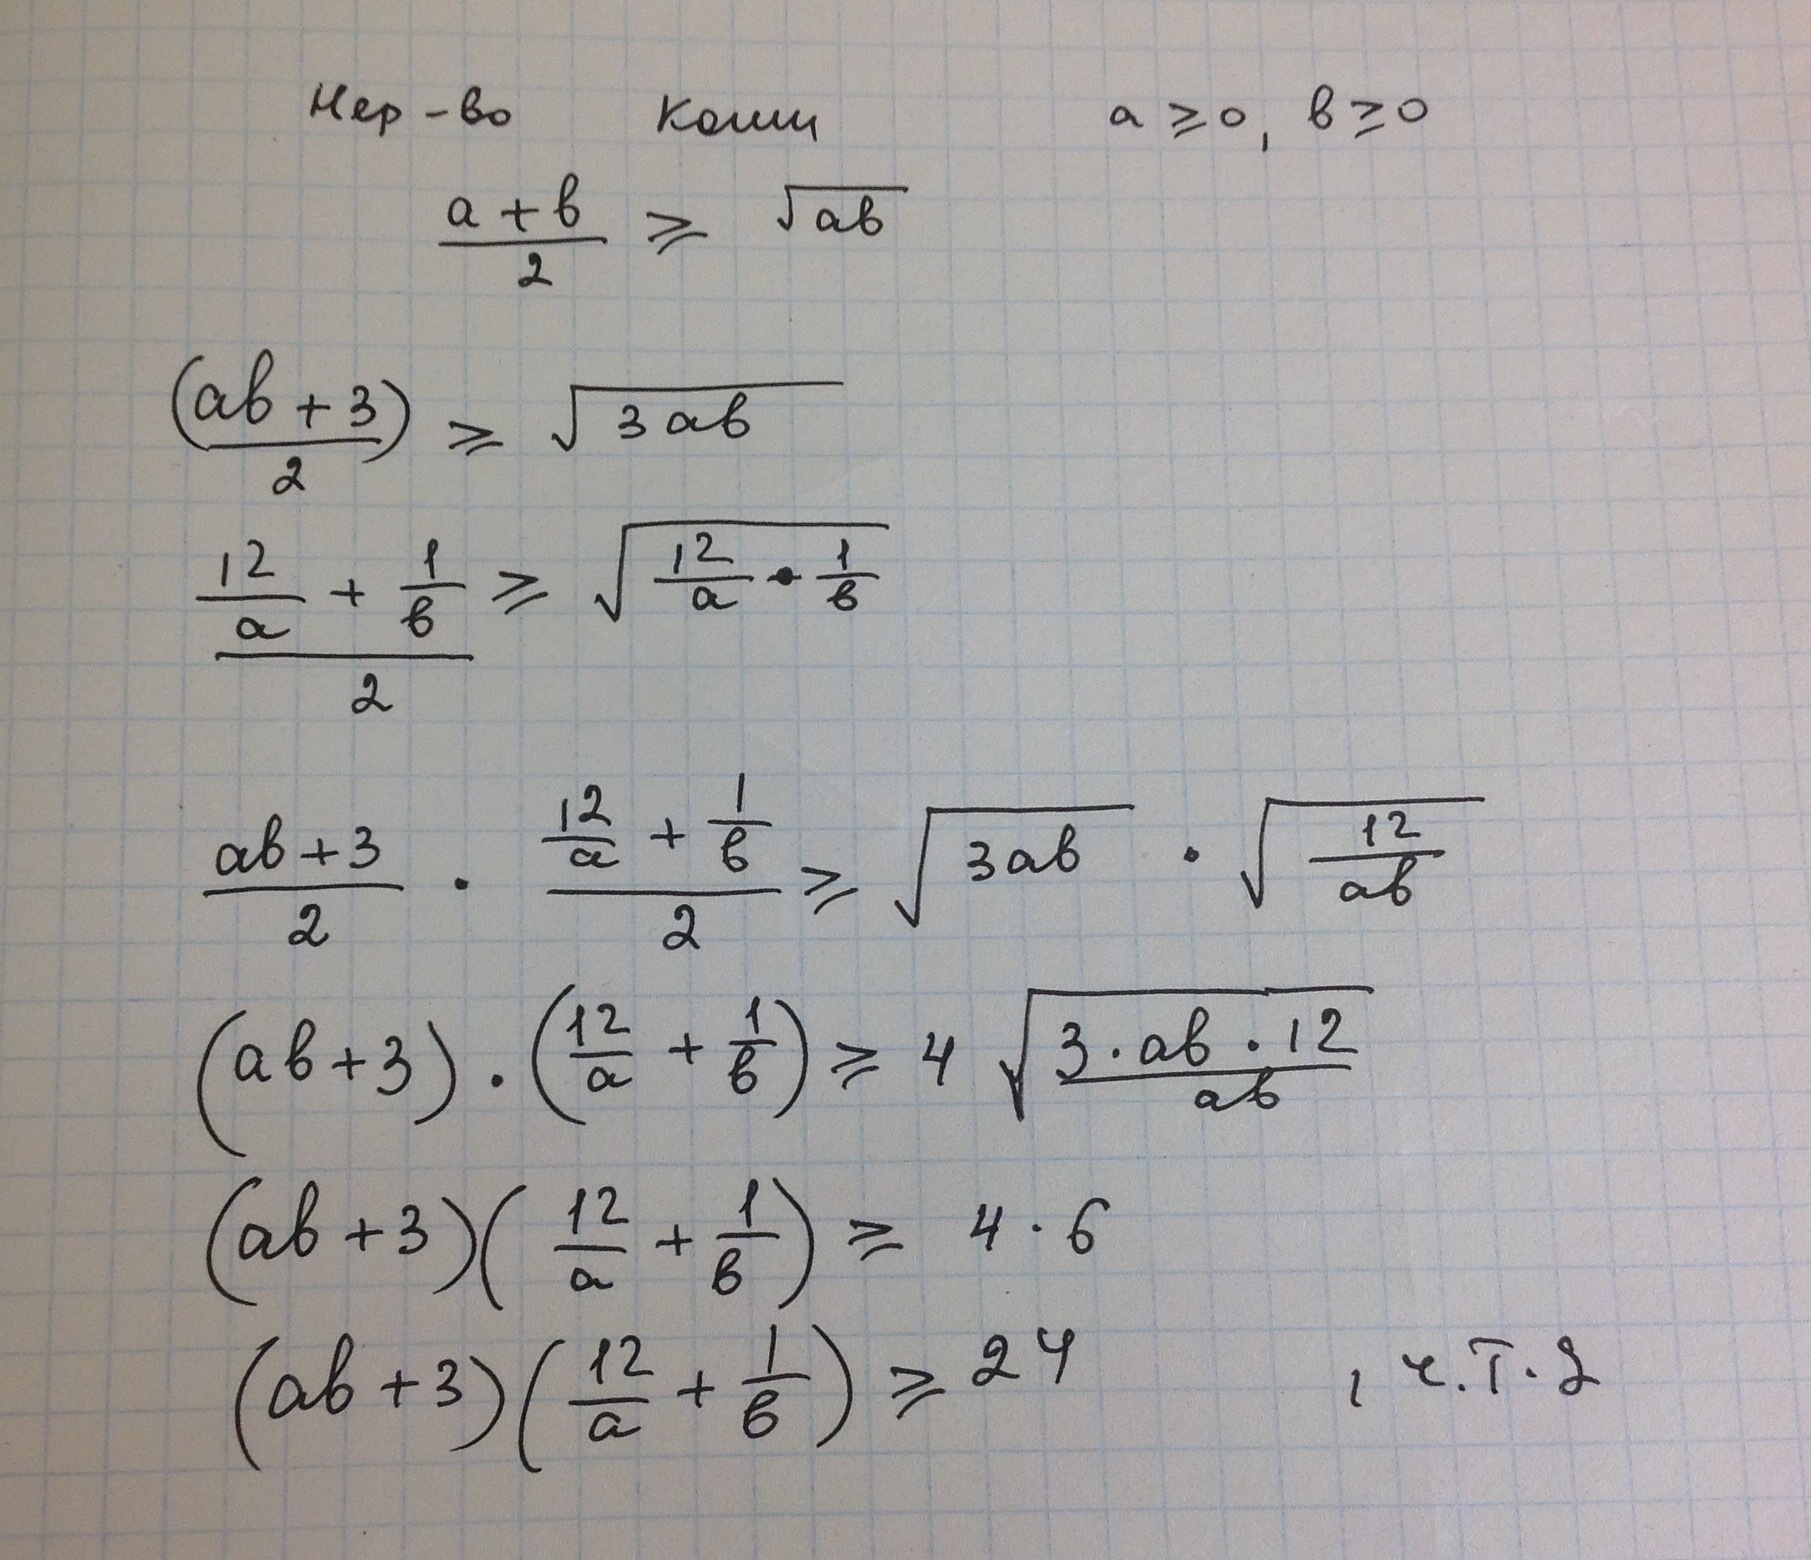 Нер-во Коши a ≥ 0, b ≥ 0
(a + b)/2 ≥ √(ab)
(ab + 3)/2 ≥ √(3ab)
(12/a + 1/b)/2 ≥ √(12/a • 1/b)
(ab + 3)/2 · (12/a + 1/b)/2 ≥ √(3ab) · √(12/(ab))
(ab + 3) · (12/a + 1/b) ≥ 4 √((3 · ab · 12)/(ab))
(ab + 3)(12/a + 1/b) ≥ 4 · 6
(ab + 3)(12/a + 1/b) ≥ 24 , ч.т.д